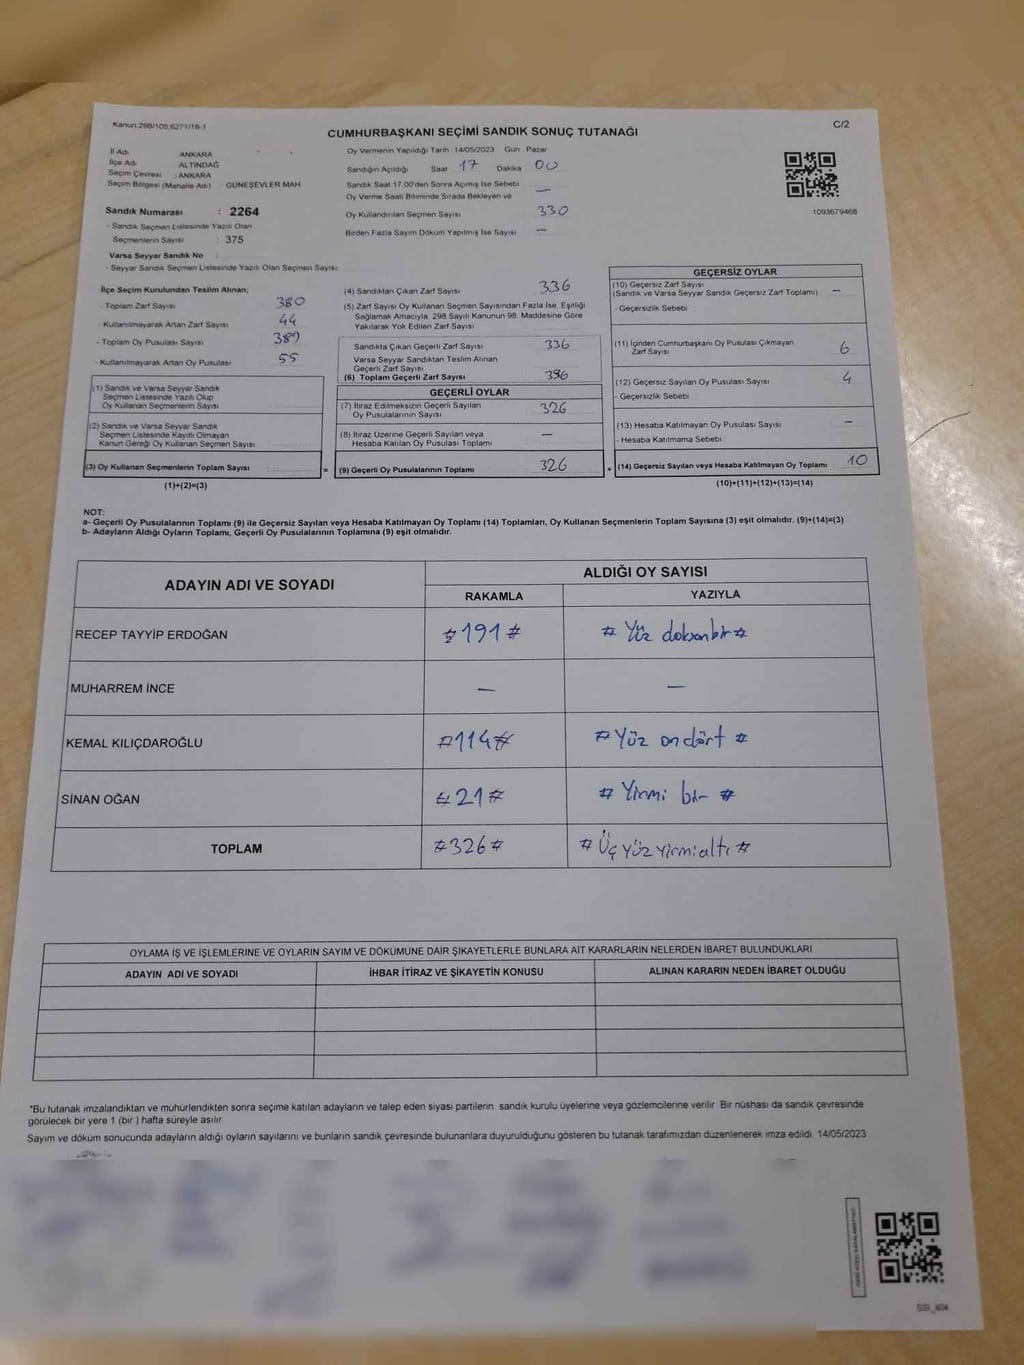 Kanun:298/105;6271/18-1
C/2
CUMHURBAŞKANI SEÇİMİ SANDIK SONUÇ TUTANAĞI
İl Adı : ANKARA
İlçe Adı : ALTINDAĞ
Seçim Çevresi : ANKARA
Seçim Bölgesi (Mahalle Adı) : GÜNEŞEVLER MAH
Sandık Numarası : 2264
- Sandık Seçmen Listesinde Yazılı Olan
Seçmenlerin Sayısı : 375
Varsa Seyyar Sandık No :
- Seyyar Sandık Seçmen Listesinde Yazılı Olan Seçmen Sayısı:
Oy Vermenin Yapıldığı Tarih 14/05/2023 Gün Pazar
Sandığın Açıldığı Saat 17 Dakika 00
Sandık Saat 17:00'den Sonra Açımış İse Sebebi —
Oy Verme Saati Bitiminde Sırada Bekleyen ve
Oy Kullandırılan Seçmen Sayısı 330
Birden Fazla Sayım Döküm Yapılmış İse Sayısı —
1093679468
İlçe Seçim Kurulundan Teslim Alınan;
- Toplam Zarf Sayısı 380
- Kullanılmayarak Artan Zarf Sayısı 44
- Toplam Oy Pusulası Sayısı 389
- Kullanılmayarak Artan Oy Pusulası 55
(1) Sandık ve Varsa Seyyar Sandık
Seçmen Listesinde Yazılı Olup
Oy Kullanan Seçmenlerin Sayısı
(2) Sandık ve Varsa Seyyar Sandık
Seçmen Listesinde Kayıtlı Olmayan
Kanun Gereği Oy Kullanan Seçmen Sayısı
(3) Oy Kullanan Seçmenlerin Toplam Sayısı =
(1)+(2)=(3)
(4) Sandıktan Çıkan Zarf Sayısı 336
(5) Zarf Sayısı Oy Kullanan Seçmen Sayısından Fazla İse, Eşitliği
Sağlamak Amacıyla, 298 Sayılı Kanunun 98. Maddesine Göre
Yakılarak Yok Edilen Zarf Sayısı
Sandıkta Çıkan Geçerli Zarf Sayısı 336
Varsa Seyyar Sandıktan Teslim Alınan
Geçerli Zarf Sayısı
(6) Toplam Geçerli Zarf Sayısı 336
GEÇERLİ OYLAR
(7) İtiraz Edilmeksizin Geçerli Sayılan
Oy Pusulalarının Sayısı 326
(8) İtiraz Üzerine Geçerli Sayılan veya
Hesaba Katılan Oy Pusulası Toplamı —
(9) Geçerli Oy Pusulalarının Toplamı 326 +
GEÇERSİZ OYLAR
(10) Geçersiz Zarf Sayısı
(Sandık ve Varsa Seyyar Sandık Geçersiz Zarf Toplamı) —
- Geçersizlik Sebebi :
(11) İçinden Cumhurbaşkanı Oy Pusulası Çıkmayan
Zarf Sayısı 6
(12) Geçersiz Sayılan Oy Pusulası Sayısı 4
- Geçersizlik Sebebi :
(13) Hesaba Katılmayan Oy Pusulası Sayısı —
- Hesaba Katılmama Sebebi :
(14) Geçersiz Sayılan veya Hesaba Katılmayan Oy Toplamı 10
(10)+(11)+(12)+(13)=(14)
NOT:
a- Geçerli Oy Pusulalarının Toplamı (9) ile Geçersiz Sayılan veya Hesaba Katılmayan Oy Toplamı (14) Toplamları, Oy Kullanan Seçmenlerin Toplam Sayısına (3) eşit olmalıdır. (9)+(14)=(3)
b- Adayların Aldığı Oyların Toplamı, Geçerli Oy Pusulalarının Toplamına (9) eşit olmalıdır.
ADAYIN ADI VE SOYADI
ALDIĞI OY SAYISI
RAKAMLA YAZIYLA
RECEP TAYYİP ERDOĞAN #191# # Yüz doksanbir #
MUHARREM İNCE — —
KEMAL KILIÇDAROĞLU #114# # Yüz ondört #
SİNAN OĞAN #21# # Yirmi bir #
TOPLAM #326# # Üç yüz yirmi altı #
OYLAMA İŞ VE İŞLEMLERİNE VE OYLARIN SAYIM VE DÖKÜMÜNE DAİR ŞİKAYETLERLE BUNLARA AİT KARARLARIN NELERDEN İBARET BULUNDUKLARI
ADAYIN ADI VE SOYADI İHBAR İTİRAZ VE ŞİKAYETİN KONUSU ALINAN KARARIN NEDEN İBARET OLDUĞU
*Bu tutanak imzalandıktan ve mühürlendikten sonra seçime katılan adayların ve talep eden siyasi partilerin sandık kurulu üyelerine veya gözlemcilerine verilir. Bir nüshası da sandık çevresinde
görülecek bir yere 1 (bir ) hafta süreyle asılır.
Sayım ve döküm sonucunda adayların aldığı oyların sayılarını ve bunların sandık çevresinde bulunanlara duyurulduğunu gösteren bu tutanak tarafımızdan düzenlenerek imza edildi. 14/05/2023